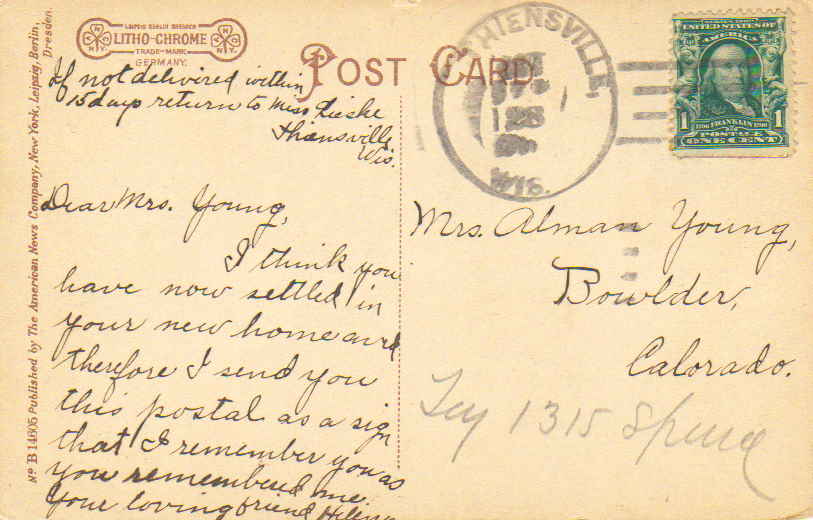 LEIPZIG BERLIN DRESDEN
LITHO-CHROME
TRADE-MARK
GERMANY.
N.Y.
N.Y.
POST CARD
If not delivered within
15 days return to Miss Lieske
Thiensville
Wis.
Dear Mrs. Young,
I think you
have now settled in
your new home and
therefore I send you
this postal as a sign
that I remember you as
you remembered me.
Your loving friend Helen
THIENSVILLE,
WIS.
UNITED STATES OF
AMERICA
1706 FRANKLIN 1790
1 1
POSTAGE
ONE CENT
Mrs. Alman Young,
Bowlder,
Colorado.
1315 Spruce
No B 14605 Published by The American News Company, New York, Leipzig, Berlin,
Dresden.